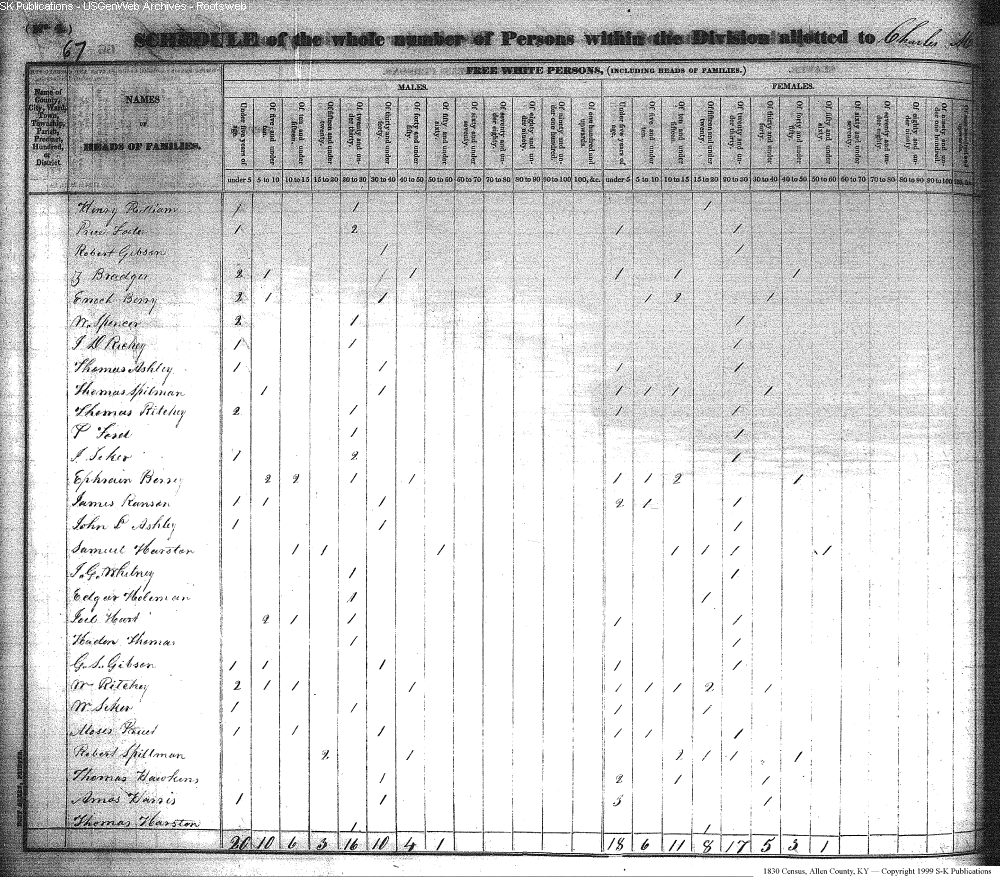 SK Publications - USGenWeb Archives - Rootsweb
(No 4.)
67 SCHEDULE of the whole number of Persons within the Division allotted to Charles M
FREE WHITE PERSONS, (INCLUDING HEADS OF FAMILIES.)
MALES. FEMALES.
Name of County, City, Ward, Town, Township, Parish, Precinct, Hundred, or District.
NAMES
OF
HEADS OF FAMILIES.
Under five years of age. Of five and under ten. Of ten and under fifteen. Of fifteen and under twenty. Of twenty and under thirty. Of thirty and under forty. Of forty and under fifty. Of fifty and under sixty. Of sixty and under seventy. Of seventy and under eighty. Of eighty and under ninety. Of ninety and under one hundred. Of one hundred and upwards. Under five years of age. Of five and under ten. Of ten and under fifteen. Of fifteen and under twenty. Of twenty and under thirty. Of thirty and under forty. Of forty and under fifty. Of fifty and under sixty. Of sixty and under seventy. Of seventy and under eighty. Of eighty and under ninety. Of ninety and under one hundred.
under 5 5 to 10 10 to 15 15 to 20 20 to 30 30 to 40 40 to 50 50 to 60 60 to 70 70 to 80 80 to 90 90 to 100 100, &c. under 5 5 to 10 10 to 15 15 to 20 20 to 30 30 to 40 40 to 50 50 to 60 60 to 70 70 to 80 80 to 90 90 to 100 100, &c.
Henry 1 1 1
Price 1 2 1 1
Robert Gibson 1 1
Bradger 2 1 1 1 1 1
Enoch Berry 2 1 1 1 2 1
W. Spencer 2 1 1
J D Richey 1 1 1
Thomas Ashley 1 1 1 1
Thomas Spilman 1 1 1 1 1 1
Thomas Ritchey 2 1 1 1
Ford 1 1
J. Seker 1 2 1
Ephraim Berry 2 2 1 1 1 1 2 1
James Ranson 1 1 1 2 1 1
John L Ashley 1 1 1
Samuel Harston 1 1 1 1 1 1 1
J. G. Whitney 1 1
Edgar Holeman 1 1
Joel Hart 2 1 1 1 1
Haden Thomas 1 1
G. S. Gibson 1 1 1 1 1
W Ritchey 2 1 1 1 1 1 1 2 1
W Seker 1 1 1 1
Moses 1 1 1 1 1 1
Robert Spillman 2 1 2 1 1 1
Thomas Hawkins 1 2 1 1
Amos Harris 1 1 3 1
Thomas Harston 1 1
20 10 6 3 16 10 4 1 18 6 11 8 17 5 3 1
1830 Census, Allen County, KY — Copyright 1999 S-K Publications